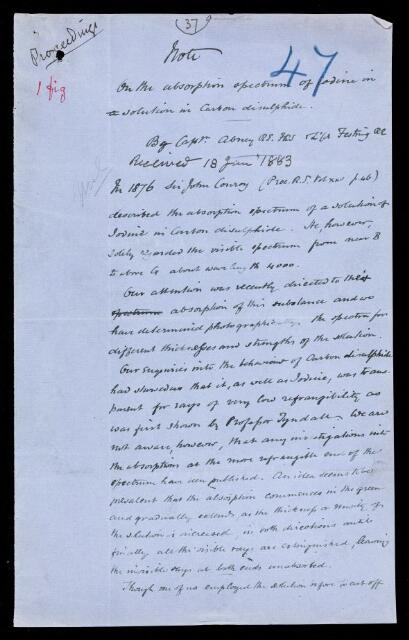 (37)
Proceedings
1 fig
47
Note
On the absorption spectrum of Iodine in
a solution in Carbon disulphide.
By Capt. Abney R.E. FRS & Lt. Col Festing R.E
Received 18 Jan 1883
In 1876 Sir John Conroy (Proc. R.S. Vol xxv p 46)
described the absorption spectrum of a solution of
Iodine in Carbon disulphide. He, however,
solely regarded the visible spectrum from near B
to above G about wavelength 4000.
Our attention was recently directed to the
spectrum absorption of this substance and we
have determined photographically the spectra for
different thicknesses and strengths of the solution
Our enquiries into the behaviour of Carbon disulphide
had shewed us that it, as well as Iodine, was trans
parent for rays of very low refrangibility as
was first shown by Professor Tyndall. We are
not aware, however, that any investigations into
the absorption at the more refrangible end of the
spectrum have been published. An idea seems to be
prevalent that the absorption commences in the green
and gradually extends as the thickness or density of
the solution is increased in both directions until
finally all the visible rays are extinguished, leaving
the invisible rays at both ends unabsorbed.
Though one of us employed the solution before to cut off